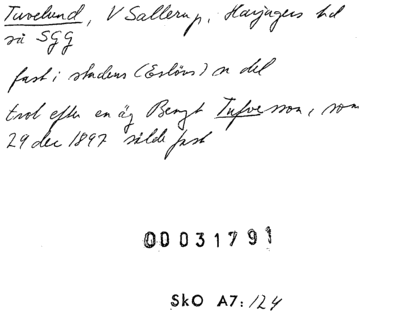 Tuvelund, V Sallerup, Harjagers hd
så SGG
fast i stadens (Eslövs) n del
trol efter en äg Bengt Tufvesson, som
29 dec 1897 sålde fast
00031791
SkO A7:124